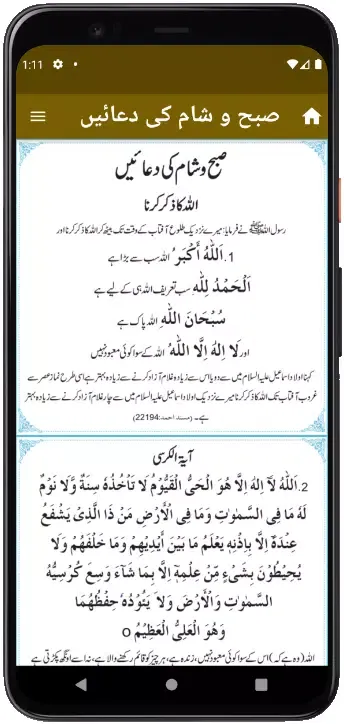 1:11
صبح و شام کی دعائیں
صبح و شام کی دعائیں
اللہ کا ذکر کرنا
رسول اللہ ﷺ نے فرمایا: میرے نزدیک طلوع آفتاب کے وقت تک بیٹھ کر اللہ کا ذکر کرنا اور
1. اَللّٰهُ أَكْبَرُ اللہ سب سے بڑا ہے
اَلْحَمْدُ لِلّٰهِ سب تعریف اللہ ہی کے لیے ہے
سُبْحَانَ اللّٰهِ اللہ پاک ہے
اور لَا اِلٰهَ اِلَّا اللّٰهُ اللہ کے سوا کوئی معبود نہیں
کہنا اولاد اسماعیل علیہ السلام میں سے دو یا اس سے زیادہ غلام آزاد کرنے سے زیادہ بہتر ہے اسی طرح نماز عصر سے
غروب آفتاب تک اللہ کا ذکر کرنا میرے نزدیک اولاد اسماعیل علیہ السلام میں سے چار غلام آزاد کرنے سے زیادہ بہتر
ہے۔ (مسند احمد:22194)
آیۃ الکرسی
2. اَللّٰهُ لَآ اِلٰهَ اِلَّا هُوَ الْحَیُّ الْقَیُّوْمُ لَا تَاْخُذُهٗ سِنَةٌ وَّلَا نَوْمٌ
لَهٗ مَا فِی السَّمٰوٰتِ وَمَا فِی الْاَرْضِ مَنْ ذَا الَّذِیْ یَشْفَعُ
عِنْدَهٗ اِلَّا بِاِذْنِهٖ یَعْلَمُ مَا بَیْنَ اَیْدِیْهِمْ وَمَا خَلْفَهُمْ وَلَا
یُحِیْطُوْنَ بِشَیْءٍ مِّنْ عِلْمِهٖ اِلَّا بِمَا شَآءَ وَسِعَ كُرْسِیُّهُ
السَّمٰوٰتِ وَالْاَرْضَ وَلَا یَئُوْدُهٗ حِفْظُهُمَا
وَهُوَ الْعَلِیُّ الْعَظِیْمُ o
اللہ (وہ ہے کہ) اس کے سوا کوئی معبود نہیں، زندہ ہے، ہر چیز کو قائم رکھنے والا ہے، نہ اسے اونگھ پکڑتی ہے